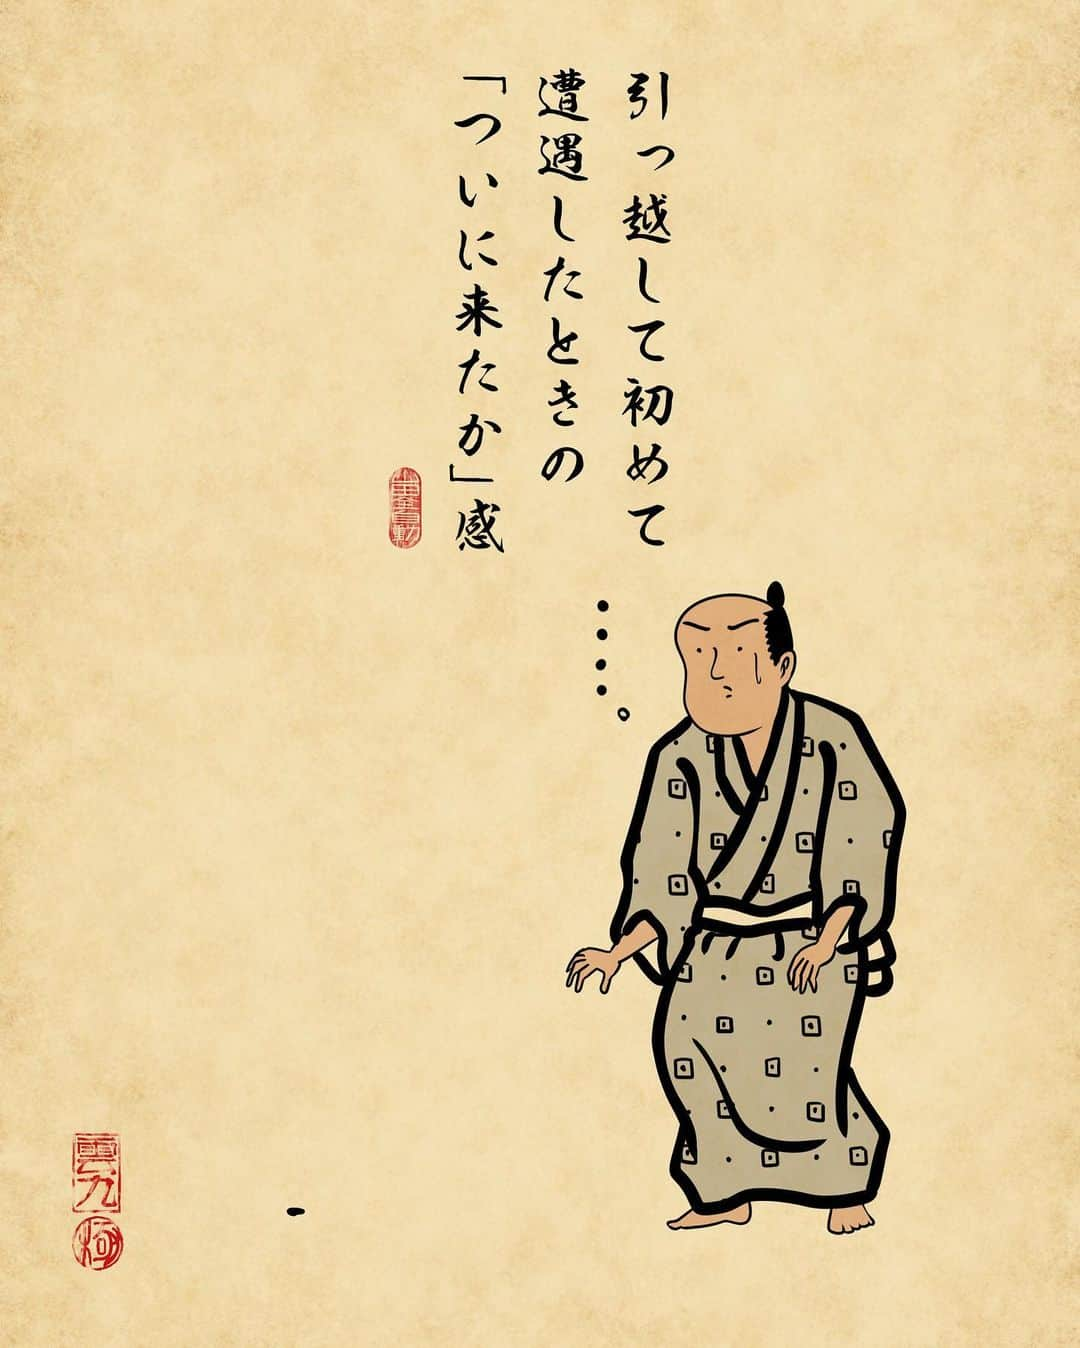 引っ越して初めて
遭遇したときの
「ついに来たか」感